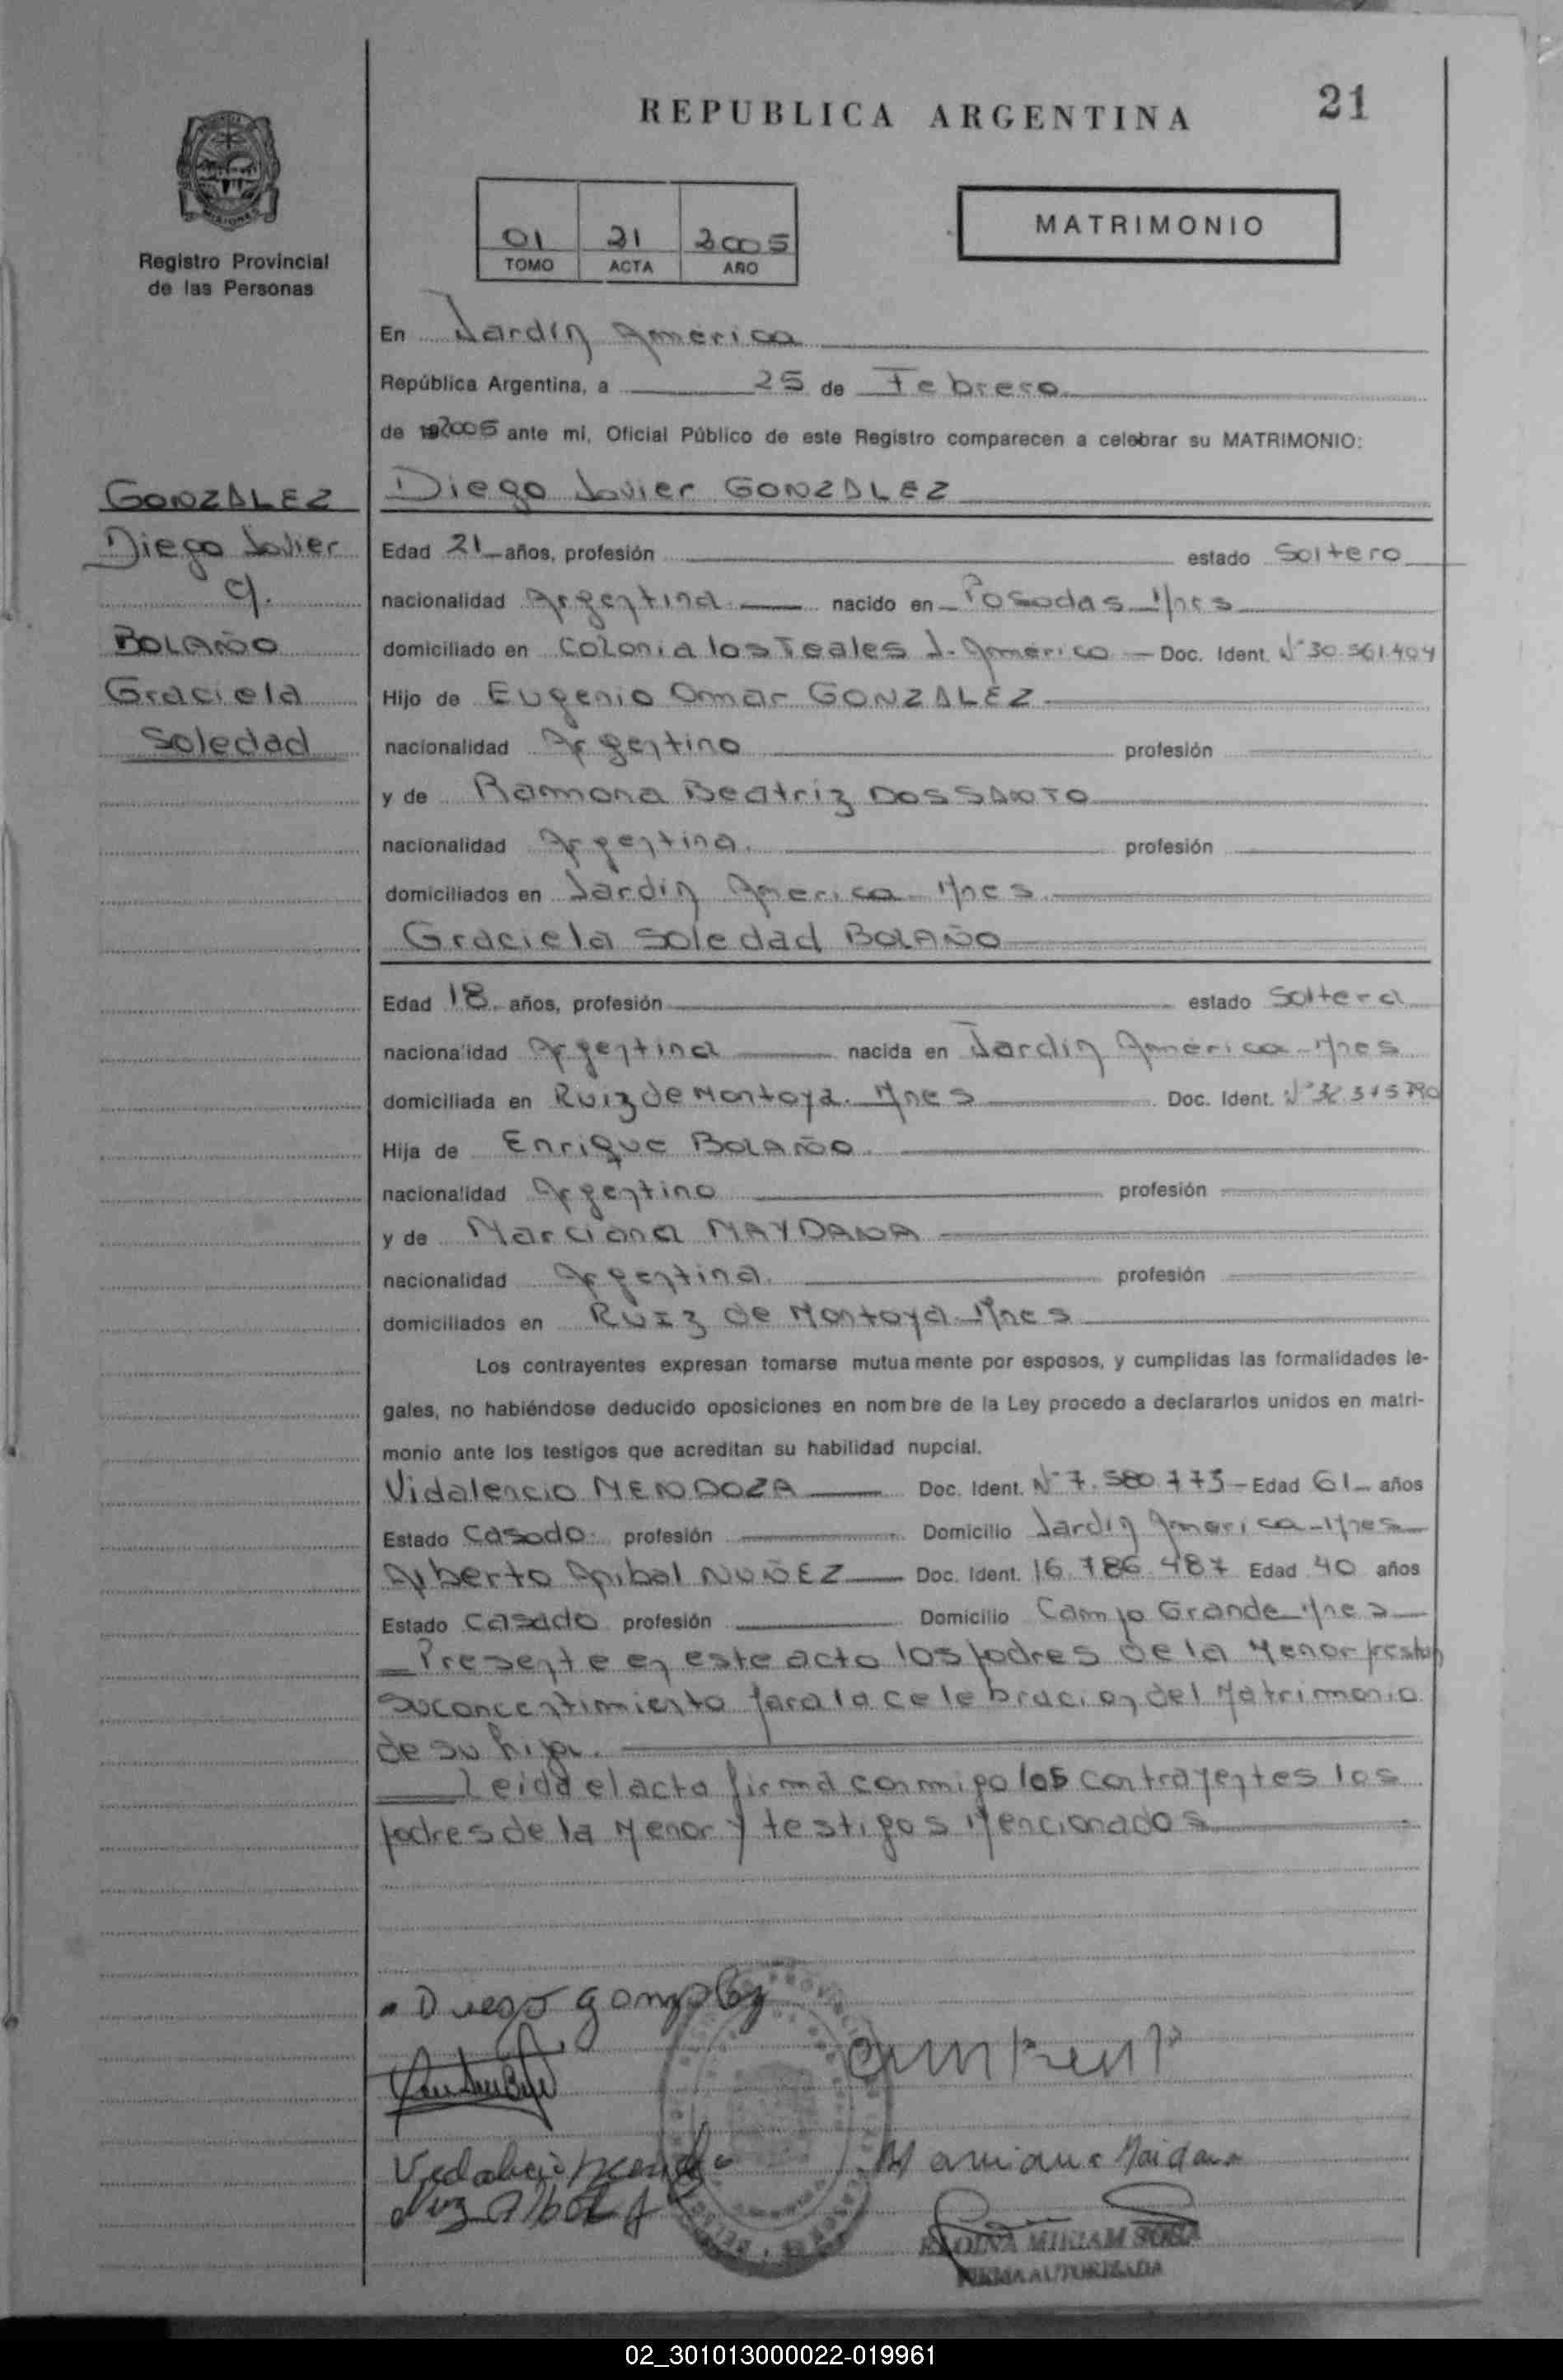 REPUBLICA ARGENTINA
21
MISIONES
Registro Provincial
de las Personas
01 21 2005
TOMO ACTA AÑO
MATRIMONIO
En Jardín América
República Argentina, a 25 de Febrero
de 192005 ante mi, Oficial Público de este Registro comparecen a celebrar su MATRIMONIO:
GONZALEZ
Diego Javier
c/.
BOLAÑO
Graciela
Soledad
Diego Javier GONZALEZ
Edad 21 años, profesión estado Soltero
nacionalidad Argentina nacido en Posadas Mnes
domiciliado en Colonia los Teales J. América Doc. Ident. Nº 30.561.404
Hijo de Eugenio Omar GONZALEZ
nacionalidad Argentino profesión
y de Ramona Beatriz DOSSANTO
nacionalidad Argentina. profesión
domiciliados en Jardín América Mnes.
Graciela Soledad BOLAÑO
Edad 18. años, profesión estado Soltera
nacionalidad Argentina nacida en Jardín América Mnes
domiciliada en Ruiz de Montoya. Mnes Doc. Ident. Nº 32.
Hija de Enrique BOLAÑO.
nacionalidad Argentino profesión
y de Marciana MAYDANA
nacionalidad Argentina. profesión
domiciliados en Ruiz de Montoya. Mnes
Los contrayentes expresan tomarse mutua mente por esposos, y cumplidas las formalidades le-
gales, no habiéndose deducido oposiciones en nom bre de la Ley procedo a declararlos unidos en matri-
monio ante los testigos que acreditan su habilidad nupcial.
Vidalencio MENDOZA Doc. Ident. Nº 7.580.773 Edad 61 años
Estado Casado. profesión Domicilio Jardín América Mnes
Alberto Anibal NUÑEZ Doc. Ident. 16.786.487 Edad 40 años
Estado Casado profesión Domicilio Campo Grande Mnes
Presente en este acto los padres de la Menor prestan
su concentimiento para la celebracion del Matrimonio
de su hija.
Leida el acta firma conmigo los contrayentes los
padres de la Menor y testigos Mencionados
Diego gonzalez
Maidana
MIRIAM SOSA
FIRMA AUTORIZADA
02_301013000022-019961